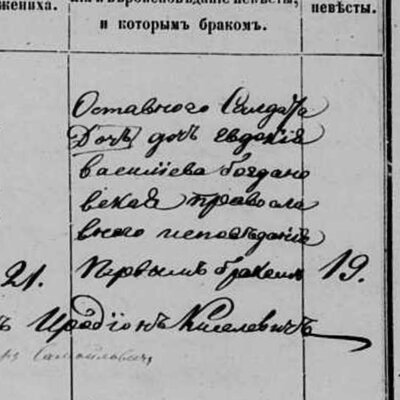 жениха.
и которымъ бракомъ.
невѣсты.
Оставного Солдата
Дочь дочь Евдокія
Василиева Богдано
вская правосла
вного исповѣданія
21. Первымъ бракомъ 19.
Иродіонъ Киселевичъ
Самойловичъ